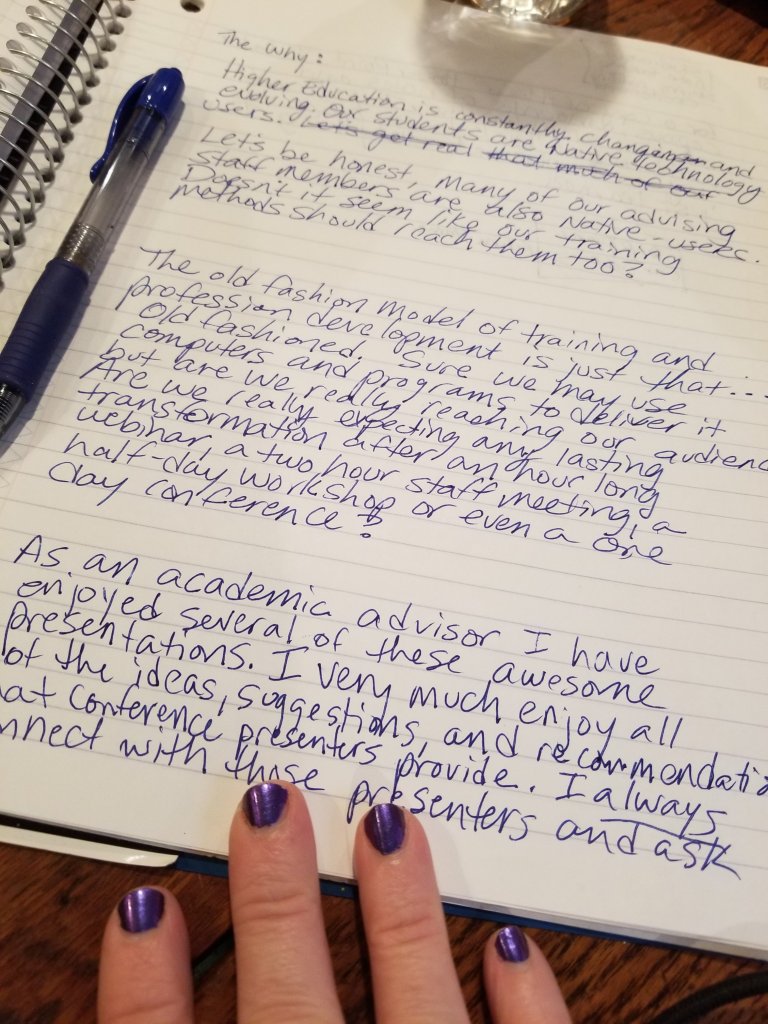 The why:
Higher Education is constantly changing and
evolving. Our students are Native technology
users. Let's get real that much of our
Let's be honest, many of our advising
staff members are also Native-users.
Doesn't it seem like our training
methods should reach them too?
The old fashion model of training and
profession development is just that...
Old fashioned. Sure we may use
computers and programs to deliver it
but are we really reaching our audienc
Are we really expecting any lasting
transformation after an hour long
webinar, a two hour staff meeting, a
half-day workshop or even a one
day conference?
As an academic advisor I have
enjoyed several of these awesome
presentations. I very much enjoy all
of the ideas, suggestions, and recommendati
at conference presenters provide. I always
nnect with those presenters and ask